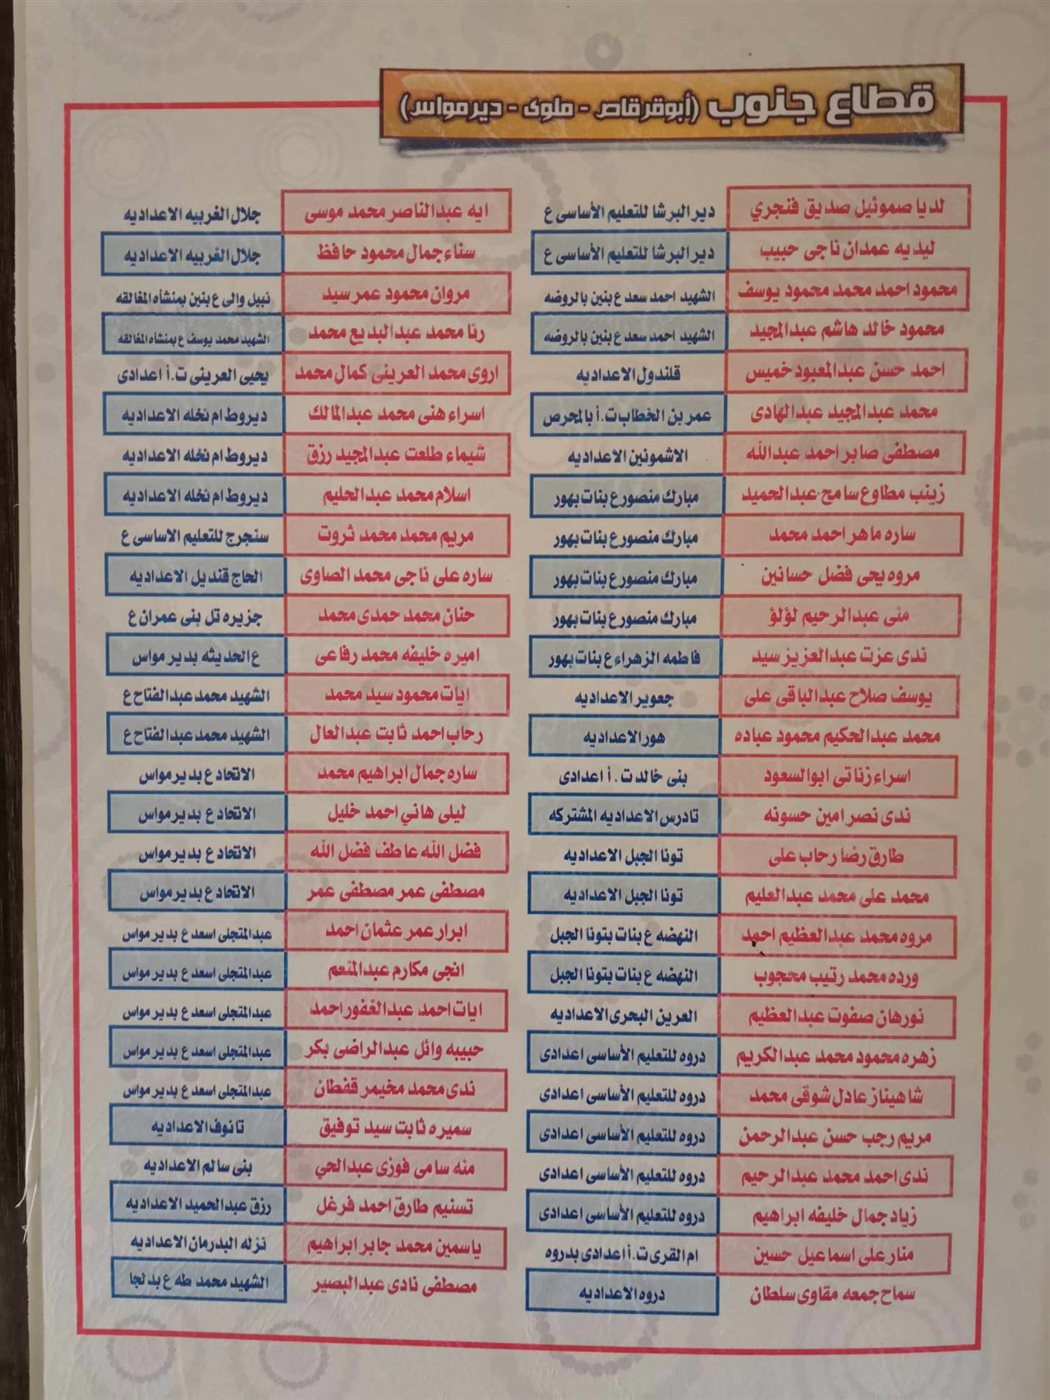 قطاع جنوب (أبوقرقاص - ملوى - ديرمواس)
لديا صموئيل صديق فنجري دير البرشا للتعليم الأساسى ع
ليديه عمدان ناجى حبيب دير البرشا للتعليم الأساسى ع
محمود احمد محمد محمود يوسف الشهيد احمد سعد ع بنين بالروضه
محمود خالد هاشم عبدالمجيد الشهيد احمد سعد ع بنين بالروضه
احمد حسن عبدالمعبود خميس قلندول الاعداديه
محمد عبدالمجيد عبدالهادى عمر بن الخطاب ت.أ بالمحرص
مصطفى صابر احمد عبدالله الاشمونين الاعداديه
زينب مطاوع سامح عبدالحميد مبارك منصور ع بنات بهور
ساره ماهر احمد محمد مبارك منصور ع بنات بهور
مروه يحى فضل حسانين مبارك منصور ع بنات بهور
منى عبدالرحيم لؤلؤ مبارك منصور ع بنات بهور
ندى عزت عبدالعزيز سيد فاطمه الزهراء ع بنات بهور
يوسف صلاح عبدالباقى على جعوير الاعداديه
محمد عبدالحكيم محمود عباده هور الاعداديه
اسراء زناتى ابوالسعود بنى خالد ت.أ اعدادى
ندى نصر امين حسونه تادرس الاعداديه المشتركه
طارق رضا رحاب على تونا الجبل الاعداديه
محمد على محمد عبدالعليم تونا الجبل الاعداديه
مروه محمد عبدالعظيم احمد النهضه ع بنات بتونا الجبل
ورده محمد رتيب محجوب النهضه ع بنات بتونا الجبل
نورهان صفوت عبدالعظيم العرين البحرى الاعداديه
زهره محمود محمد عبدالكريم دروه للتعليم الأساسى اعدادى
شاهيناز عادل شوقى محمد دروه للتعليم الأساسى اعدادى
مريم رجب حسن عبدالرحمن دروه للتعليم الأساسى اعدادى
ندى احمد محمد عبدالرحيم دروه للتعليم الأساسى اعدادى
زياد جمال خليفه ابراهيم دروه للتعليم الأساسى اعدادى
منار على اسماعيل حسين ام القرى ت.أ اعدادى بدروه
سماح جمعه مقاوى سلطان دروه الاعداديه
ايه عبدالناصر محمد موسى جلال الغربيه الاعداديه
سناء جمال محمود حافظ جلال الغربيه الاعداديه
مروان محمود عمر سيد نبيل والى ع بنين بمنشأه المغالقه
رنا محمد عبدالبديع محمد الشهيد محمد يوسف ع بمنشاه المغالقه
اروى محمد العرينى كمال محمد يحيى العرينى ت.أ اعدادى
اسراء هنى محمد عبدالمالك ديروط ام نخله الاعداديه
شيماء طلعت عبدالمجيد رزق ديروط ام نخله الاعداديه
اسلام محمد عبدالحليم ديروط ام نخله الاعداديه
مريم محمد محمد ثروت سنجرج للتعليم الاساسى ع
ساره على ناجى محمد الصاوى الحاج قنديل الاعداديه
حنان محمد حمدى محمد جزيره تل بنى عمران ع
اميره خليفه محمد رفاعى ع الحديثه بدير مواس
ايات محمود سيد محمد الشهيد محمد عبدالفتاح ع
رحاب احمد ثابت عبدالعال الشهيد محمد عبدالفتاح ع
ساره جمال ابراهيم محمد الاتحاد ع بدير مواس
ليلى هاني احمد خليل الاتحاد ع بدير مواس
فضل الله عاطف فضل الله الاتحاد ع بدير مواس
مصطفى عمر مصطفى عمر الاتحاد ع بدير مواس
ابرار عمر عثمان احمد عبدالمتجلى اسعد ع بدير مواس
انجى مكارم عبدالمنعم عبدالمتجلى اسعد ع بدير مواس
ايات احمد عبدالغفور احمد عبدالمتجلى اسعد ع بدير مواس
حبيبه وائل عبدالراضى بكر عبدالمتجلى اسعد ع بدير مواس
ندى محمد مخيمر قفطان عبدالمتجلى اسعد ع بدير مواس
سميره ثابت سيد توفيق تانوف الاعداديه
منه سامى فوزى عبدالحي بنى سالم الاعداديه
تسنيم طارق احمد فرغل رزق عبدالحميد الاعداديه
ياسمين محمد جابر ابراهيم نزله البدرمان الاعداديه
مصطفى نادى عبدالبصير الشهيد محمد طه ع بدلجا